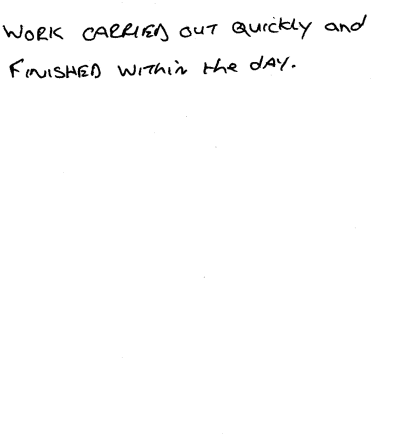 WORK CARRIED OUT Quickly and
FINISHED WITHin the DAY.